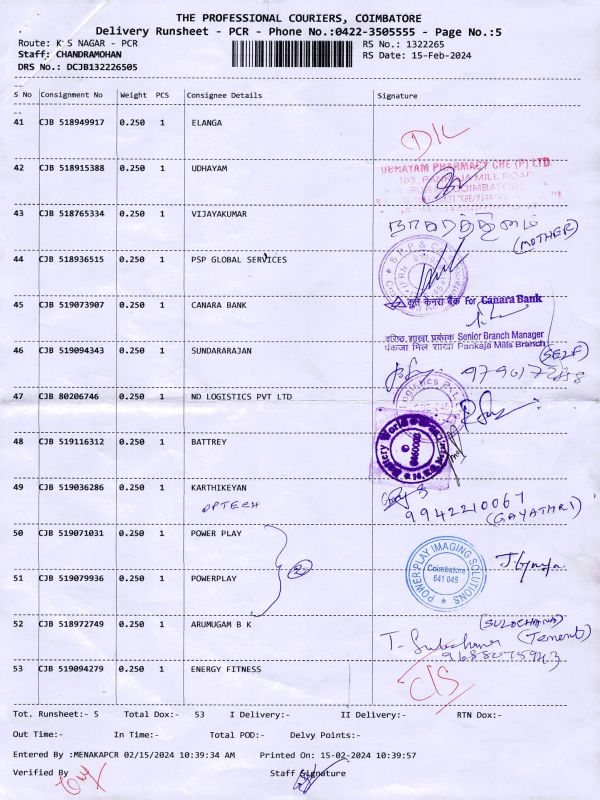 THE PROFESSIONAL COURIERS, COIMBATORE
Delivery Runsheet - PCR - Phone No.:0422-3505555 - Page No.:5
Route: K S NAGAR - PCR RS No.: 1322265
Staff: CHANDRAMOHAN RS Date: 15-Feb-2024
DRS No.: DCJB132226505
S No Consignment No Weight PCS Consignee Details Signature
41 CJB 518949917 0.250 1 ELANGA
D/L
42 CJB 518915388 0.250 1 UDHAYAM
UDHAYAM PHARMACY CBE (P) LTD
PANKAJA MILL ROAD
43 CJB 518765334 0.250 1 VIJAYAKUMAR
(MOTHER)
44 CJB 518936515 0.250 1 PSP GLOBAL SERVICES
45 CJB 519073907 0.250 1 CANARA BANK
कृते केनरा बैंक For Canara Bank
वरिष्ठ शाखा प्रबंधक Senior Branch Manager
पंकजा मिल शाखा Pankaja Mills Branch
46 CJB 519094343 0.250 1 SUNDARARAJAN
(SELF)
47 CJB 80206746 0.250 1 ND LOGISTICS PVT LTD
48 CJB 519116312 0.250 1 BATTREY
49 CJB 519036286 0.250 1 KARTHIKEYAN
OPTECH
9942210067
(GAYATHRI)
50 CJB 519071031 0.250 1 POWER PLAY
POWER PLAY IMAGING SOLUTIONS
Coimbatore
641 045
51 CJB 519079936 0.250 1 POWERPLAY
2
52 CJB 518972749 0.250 1 ARUMUGAM B K
(SULOCHANA)
(Tenent)
53 CJB 519094279 0.250 1 ENERGY FITNESS
C/S
Tot. Runsheet:- 5 Total Dox:- 53 I Delivery:- II Delivery:- RTN Dox:-
Out Time:- In Time:- Total POD:- Delvy Points:-
Entered By :MENAKAPCR 02/15/2024 10:39:34 AM Printed On: 15-02-2024 10:39:57
Verified By Staff Signature